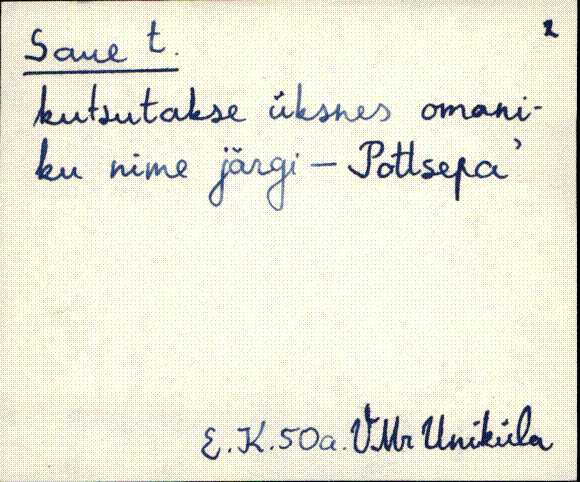 2
Saue t.
kutsutakse üksnes omani-
ku nime järgi - Pottsepa'
E.K.50a. VMr Uniküla